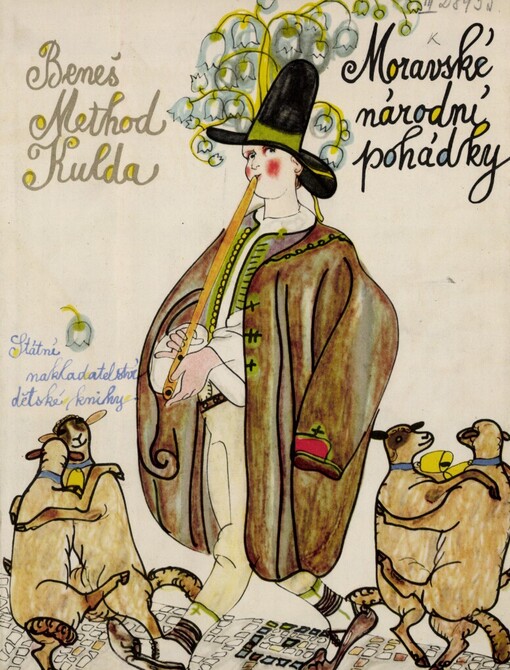 Beneš
Method
Kulda
Moravské
národní
pohádky
Státní
nakladatelství
dětské knihy
K